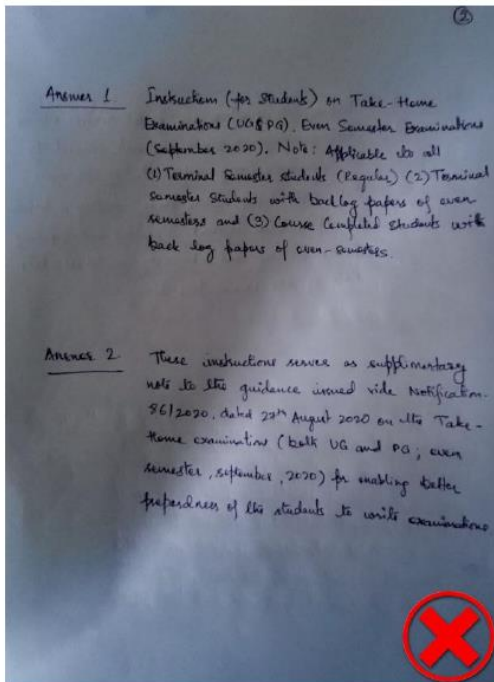 (2)
Answer 1. Instructions (for students) on Take-Home
Examinations (UG & PG), Even Semester Examinations
(September 2020). Note: Applicable to all
(1) Terminal Semester students (Regular) (2) Terminal
Semester Students with backlog papers of even
semesters and (3) Course Completed Students with
back log papers of even-semesters.
Answer 2. These instructions serves as supplimentary
note to the guidance issued vide Notification-
86/2020, dated 27th August 2020 on the Take-
Home examination (both UG and PG; even
semester, september, 2020) for enabling better
preparedness of the students to write examinations